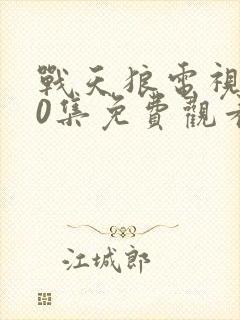 戰天狼電視
0集免費觀看
江城郎